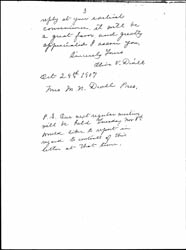 3
reply at your earliest
convenience, it will be
a great favor and greatly
appreciated I assure you.
Sincerely Yours
V.
Oct 29th 1907
Mrs M. N. Pres.
P.S. Our next regular meeting
will be held Tuesday Nov
would like to report in
regard to contents of this
letter at that time.